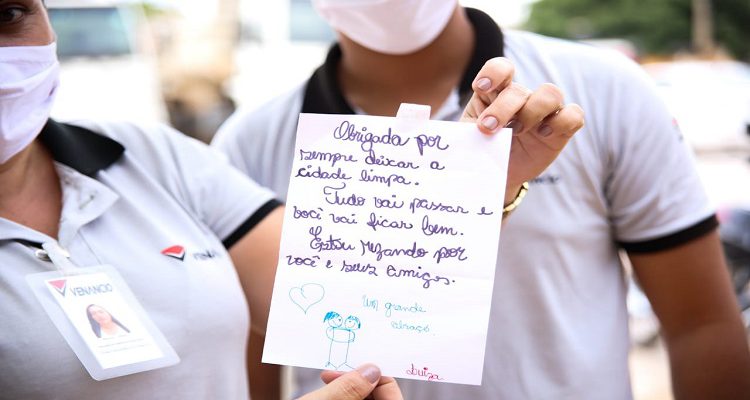 VENANCIO
Obrigada por
sempre deixar a
cidade limpa.
Tudo vai passar e
você vai ficar bem.
Estou rezando por
você e seus amigos.
Um grande
abraço.
Luiza